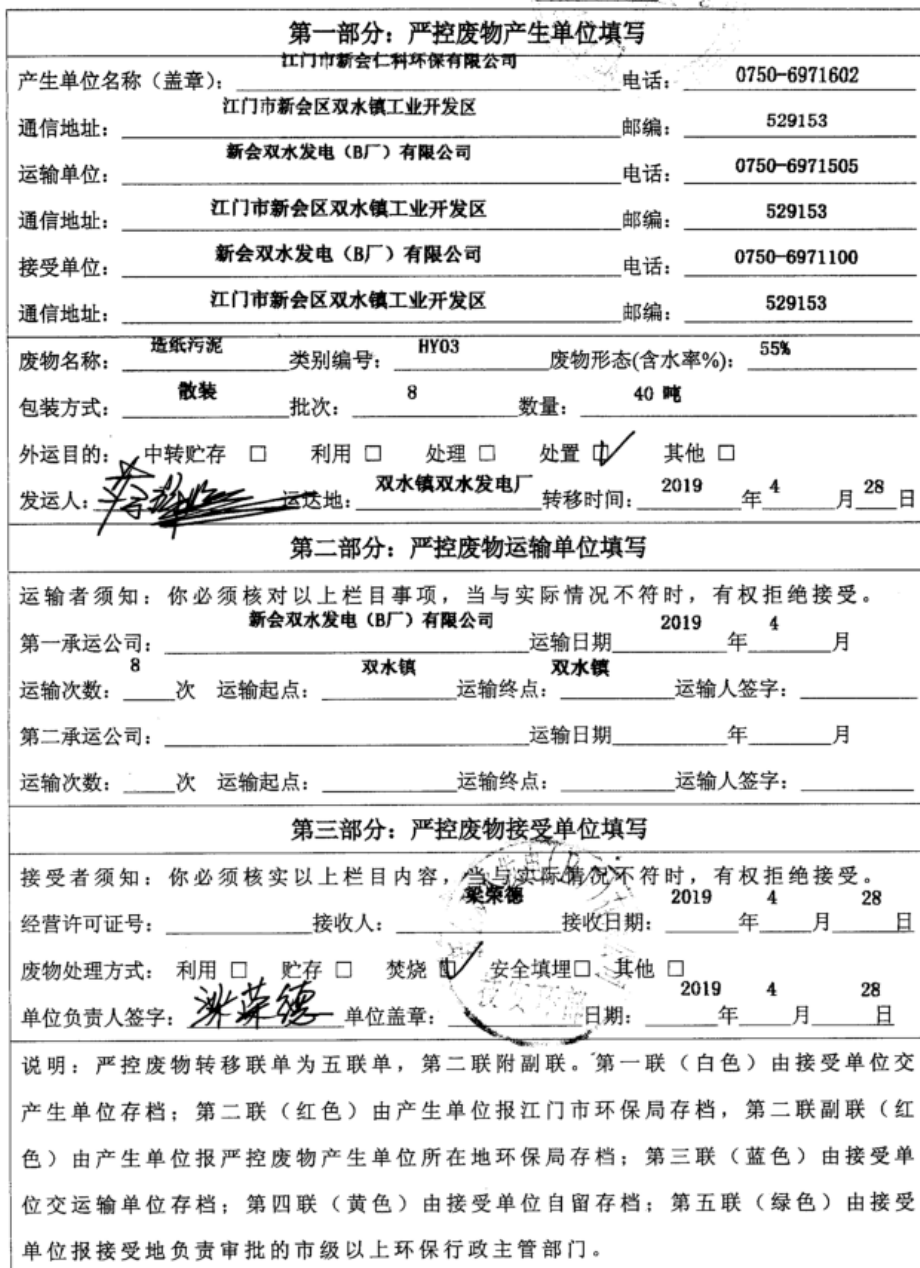 第一部分：严控废物产生单位填写
产生单位名称（盖章）：江门市新会仁科环保有限公司 电话：0750-6971602
通信地址：江门市新会区双水镇工业开发区 邮编：529153
运输单位：新会双水发电（B厂）有限公司 电话：0750-6971505
通信地址：江门市新会区双水镇工业开发区 邮编：529153
接受单位：新会双水发电（B厂）有限公司 电话：0750-6971100
通信地址：江门市新会区双水镇工业开发区 邮编：529153
废物名称：造纸污泥 类别编号：HY03 废物形态(含水率%)：55%
包装方式：散装 批次：8 数量：40 吨
外运目的：中转贮存 □ 利用 □ 处理 □ 处置 ☑ 其他 □
发运人： 运达地：双水镇双水发电厂 转移时间：2019 年 4 月 28 日
第二部分：严控废物运输单位填写
运输者须知：你必须核对以上栏目事项，当与实际情况不符时，有权拒绝接受。
第一承运公司：新会双水发电（B厂）有限公司 运输日期 2019 年 4 月
运输次数：8 次 运输起点：双水镇 运输终点：双水镇 运输人签字：
第二承运公司： 运输日期 年 月
运输次数： 次 运输起点： 运输终点： 运输人签字：
第三部分：严控废物接受单位填写
接受者须知：你必须核实以上栏目内容，当与实际情况不符时，有权拒绝接受。
经营许可证号： 接收人：梁荣德 接收日期：2019 年 4 月 28 日
废物处理方式：利用 □ 贮存 □ 焚烧 ☑ 安全填埋□ 其他 □
单位负责人签字：梁荣德 单位盖章： 日期：2019 年 4 月 28 日
说明：严控废物转移联单为五联单，第二联附副联。第一联（白色）由接受单位交
产生单位存档；第二联（红色）由产生单位报江门市环保局存档，第二联副联（红
色）由产生单位报严控废物产生单位所在地环保局存档；第三联（蓝色）由接受单
位交运输单位存档；第四联（黄色）由接受单位自留存档；第五联（绿色）由接受
单位报接受地负责审批的市级以上环保行政主管部门。